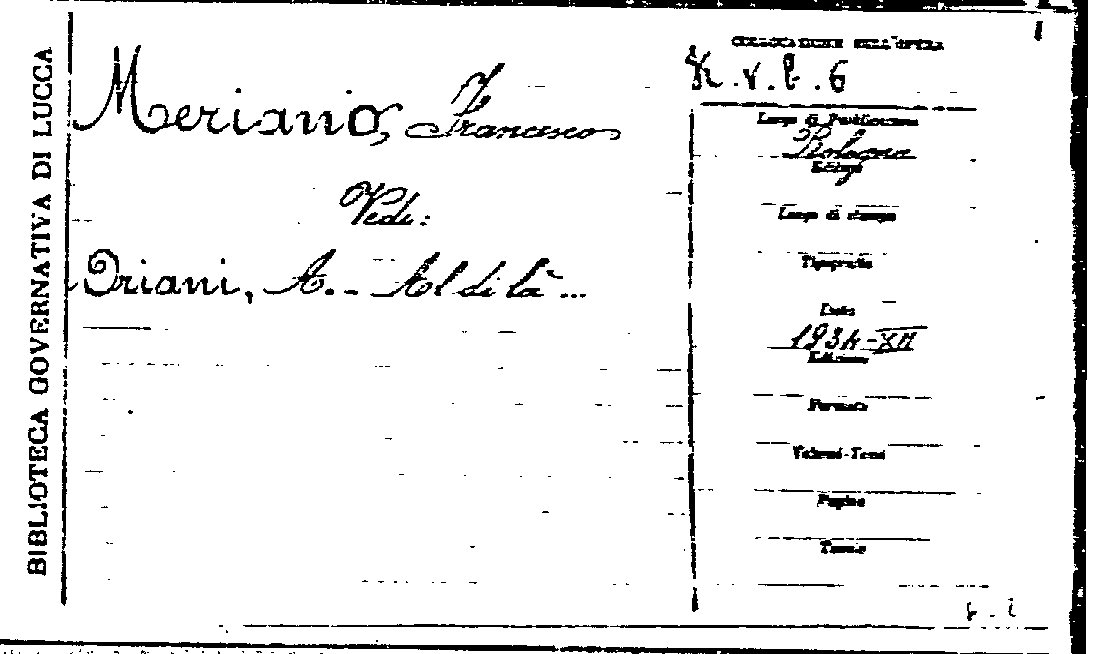 BIBLIOTECA GOVERNATIVA DI LUCCA
Meriano, Francesco
Vedi:
Oriani, A. - Al di là ...
COLLOCAZIONE DELL'OPERA
K.V.b.6
Luogo di Pubblicazione
Bologna
Editore
Luogo di stampa
Tipografia
Data
1934-XII
Edizione
Formato
Volumi-Tomi
Pagine
Tavole